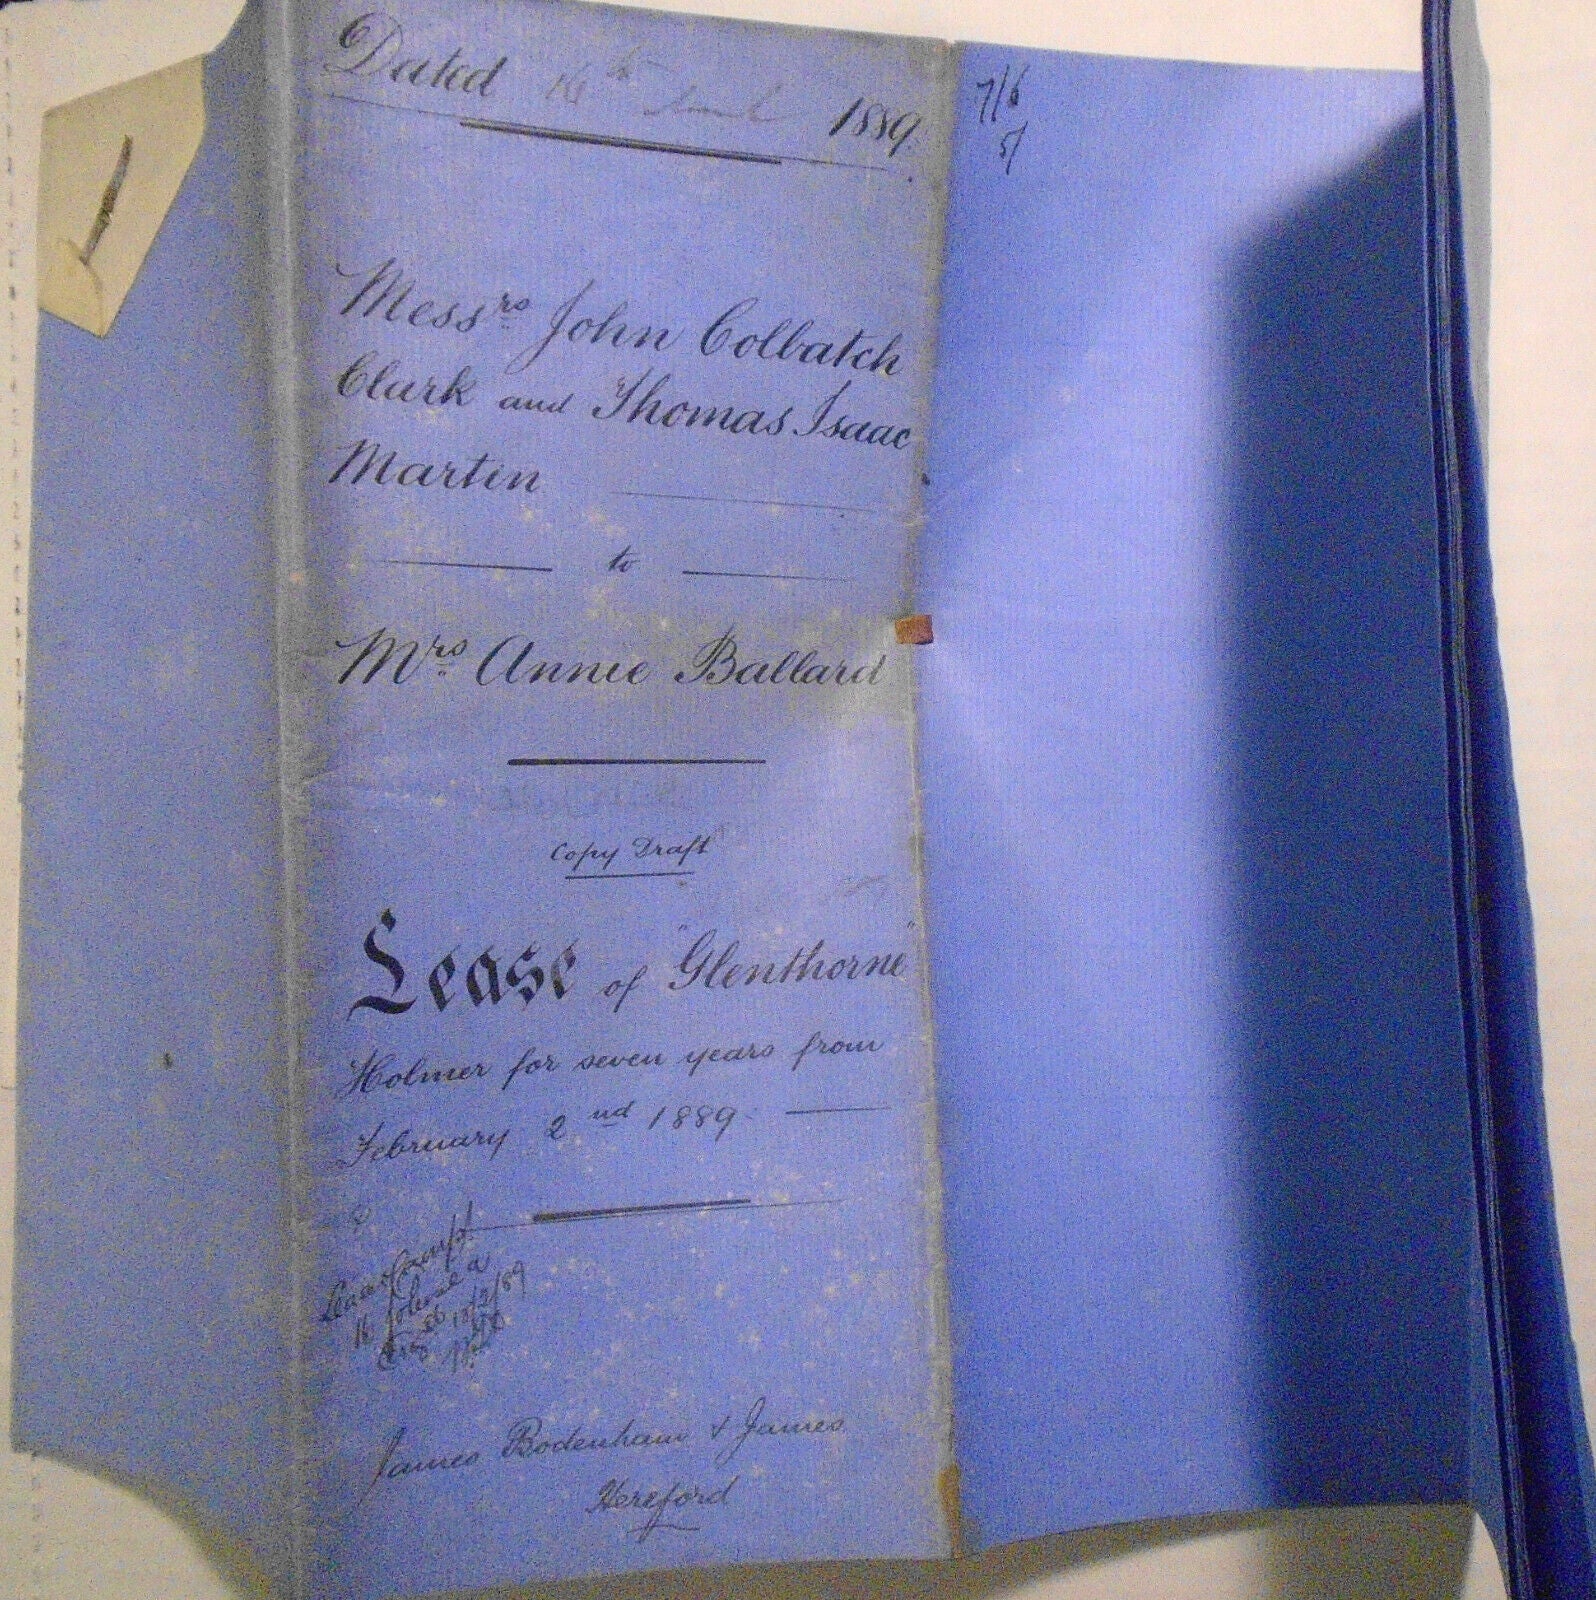 Dated 16th 1889
7/6
5/
Messrs John Colbatch
Clark and Thomas Isaac
Martin
to
Mrs Annie Ballard
Copy Draft
Lease of "Glenthorne"
Holmer for seven years from
February 2nd 1889
16
18/2/89
James Bodenham & James
Hereford